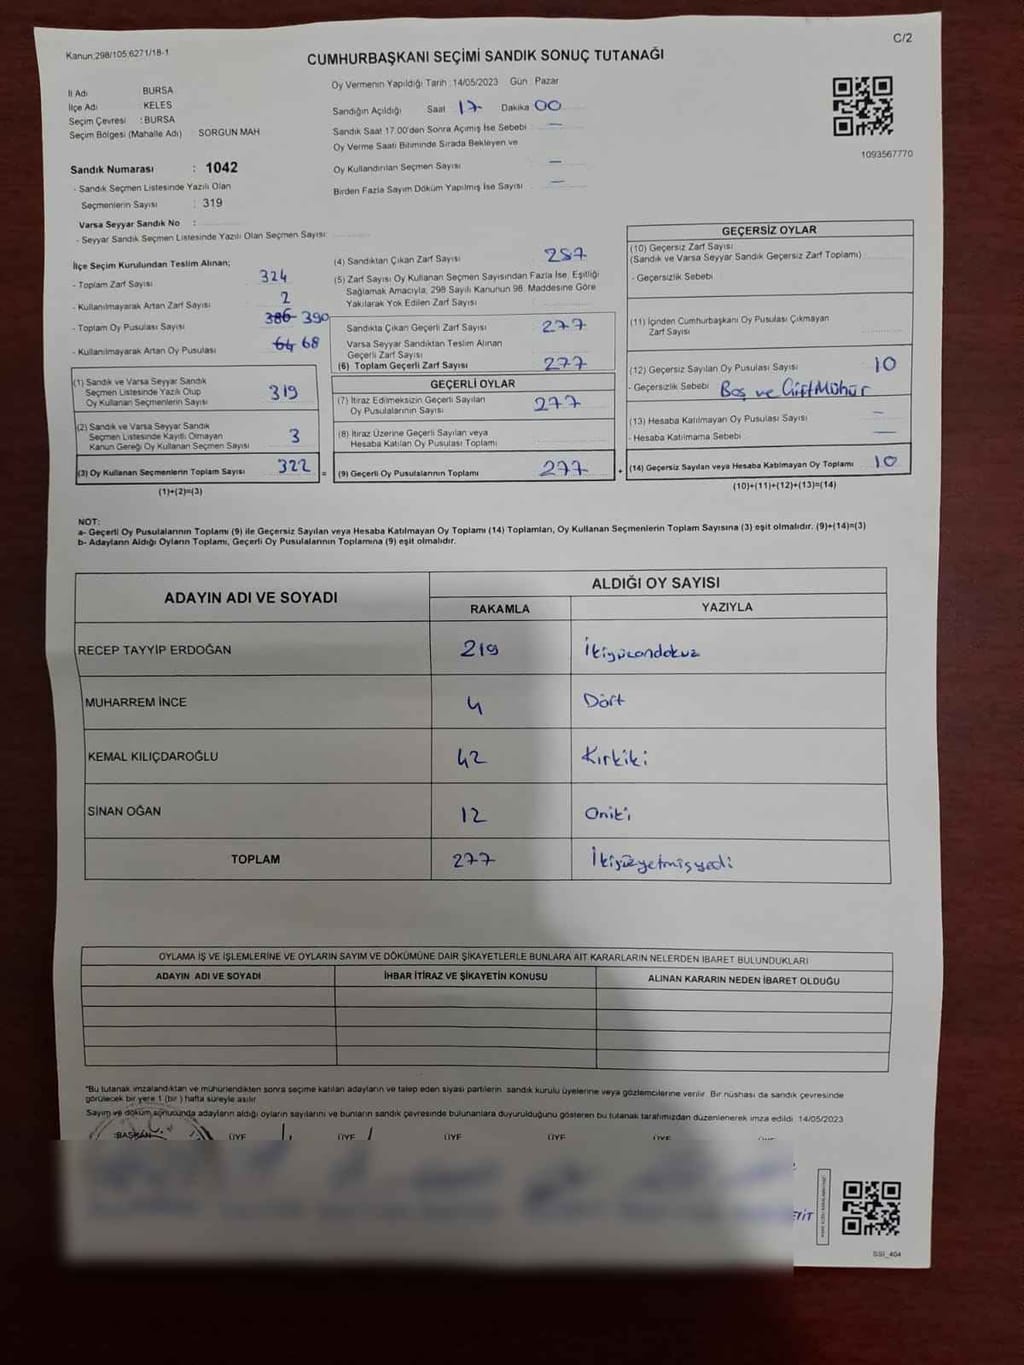 Kanun:298/105;6271/18-1
C/2
CUMHURBAŞKANI SEÇİMİ SANDIK SONUÇ TUTANAĞI
İl Adı BURSA
İlçe Adı KELES
Seçim Çevresi : BURSA
Seçim Bölgesi (Mahalle Adı) SORGUN MAH
Oy Vermenin Yapıldığı Tarih : 14/05/2023 Gün : Pazar
Sandığın Açıldığı Saat 17 Dakika 00
Sandık Saat 17.00'den Sonra Açılmış İse Sebebi —
Oy Verme Saati Bitiminde Sırada Bekleyen ve
Oy Kullandırılan Seçmen Sayısı —
Birden Fazla Sayım Döküm Yapılmış İse Sayısı —
1093567770
Sandık Numarası : 1042
- Sandık Seçmen Listesinde Yazılı Olan
Seçmenlerin Sayısı : 319
Varsa Seyyar Sandık No :
- Seyyar Sandık Seçmen Listesinde Yazılı Olan Seçmen Sayısı:
İlçe Seçim Kurulundan Teslim Alınan;
- Toplam Zarf Sayısı 324
- Kullanılmayarak Artan Zarf Sayısı 2
- Toplam Oy Pusulası Sayısı 386 390
- Kullanılmayarak Artan Oy Pusulası 64 68
(1) Sandık ve Varsa Seyyar Sandık
Seçmen Listesinde Yazılı Olup
Oy Kullanan Seçmenlerin Sayısı 319
(2) Sandık ve Varsa Seyyar Sandık
Seçmen Listesinde Kayıtlı Olmayan
Kanun Gereği Oy Kullanan Seçmen Sayısı 3
(3) Oy Kullanan Seçmenlerin Toplam Sayısı 322 =
(1)+(2)=(3)
(4) Sandıktan Çıkan Zarf Sayısı 287
(5) Zarf Sayısı Oy Kullanan Seçmen Sayısından Fazla İse, Eşitliği
Sağlamak Amacıyla, 298 Sayılı Kanunun 98. Maddesine Göre
Yakılarak Yok Edilen Zarf Sayısı
Sandıkta Çıkan Geçerli Zarf Sayısı 277
Varsa Seyyar Sandıktan Teslim Alınan
Geçerli Zarf Sayısı
(6) Toplam Geçerli Zarf Sayısı 277
GEÇERLİ OYLAR
(7) İtiraz Edilmeksizin Geçerli Sayılan
Oy Pusulalarının Sayısı 277
(8) İtiraz Üzerine Geçerli Sayılan veya
Hesaba Katılan Oy Pusulası Toplamı
(9) Geçerli Oy Pusulalarının Toplamı 277 +
GEÇERSİZ OYLAR
(10) Geçersiz Zarf Sayısı
(Sandık ve Varsa Seyyar Sandık Geçersiz Zarf Toplamı)
- Geçersizlik Sebebi
(11) İçinden Cumhurbaşkanı Oy Pusulası Çıkmayan
Zarf Sayısı
(12) Geçersiz Sayılan Oy Pusulası Sayısı 10
- Geçersizlik Sebebi Boş ve Çift Mühür
(13) Hesaba Katılmayan Oy Pusulası Sayısı —
- Hesaba Katılmama Sebebi —
(14) Geçersiz Sayılan veya Hesaba Katılmayan Oy Toplamı 10
(10)+(11)+(12)+(13)=(14)
NOT:
a- Geçerli Oy Pusulalarının Toplamı (9) ile Geçersiz Sayılan veya Hesaba Katılmayan Oy Toplamı (14) Toplamları, Oy Kullanan Seçmenlerin Toplam Sayısına (3) eşit olmalıdır. (9)+(14)=(3)
b- Adayların Aldığı Oyların Toplamı, Geçerli Oy Pusulalarının Toplamına (9) eşit olmalıdır.
ADAYIN ADI VE SOYADI ALDIĞI OY SAYISI
RAKAMLA YAZIYLA
RECEP TAYYİP ERDOĞAN 219 İkiyüzondokuz
MUHARREM İNCE 4 Dört
KEMAL KILIÇDAROĞLU 42 Kırkiki
SİNAN OĞAN 12 Oniki
TOPLAM 277 İkiyüzyetmişyedi
OYLAMA İŞ VE İŞLEMLERİNE VE OYLARIN SAYIM VE DÖKÜMÜNE DAİR ŞİKAYETLERLE BUNLARA AİT KARARLARIN NELERDEN İBARET BULUNDUKLARI
ADAYIN ADI VE SOYADI İHBAR İTİRAZ VE ŞİKAYETİN KONUSU ALINAN KARARIN NEDEN İBARET OLDUĞU
*Bu tutanak imzalandıktan ve mühürlendikten sonra seçime katılan adayların ve talep eden siyasi partilerin sandık kurulu üyelerine veya gözlemcilerine verilir. Bir nüshası da sandık çevresinde
görülecek bir yere 1 (bir) hafta süreyle asılır
Sayım ve döküm sonucunda adayların aldığı oyların sayılarını ve bunların sandık çevresinde bulunanlara duyurulduğunu gösteren bu tutanak tarafımızdan düzenlenerek imza edildi. 14/05/2023
BAŞKAN ÜYE ÜYE ÜYE ÜYE ÜYE ÜYE
SSI_404